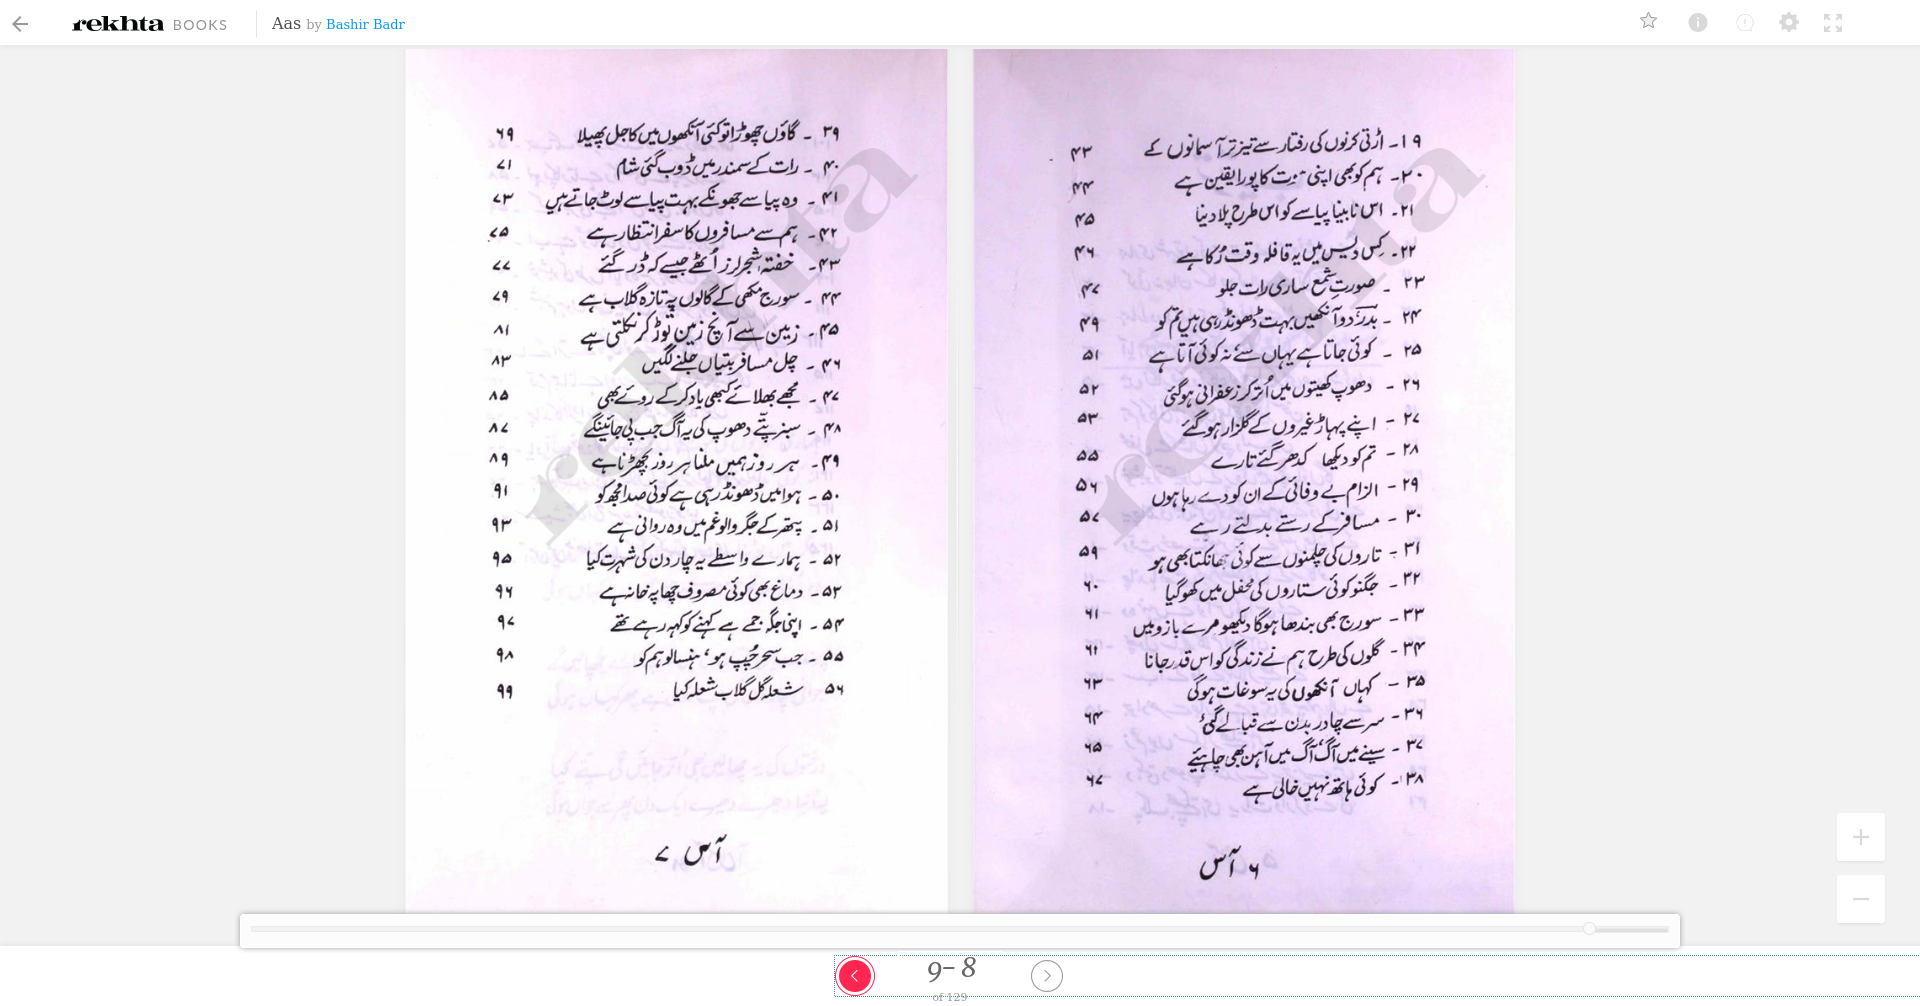 rekhta BOOKS Aas by Bashir Badr
۱۹۔ اڑتی کرنوں کی رفتار سے تیز تر آسمانوں کے ۴۳
۲۰۔ ہم کو بھی اپنی کا پورا یقین ہے ۴۴
۲۱۔ اس نابینا پیاسے کو اس طرح پلا دینا ۴۵
۲۲۔ کِس دیس میں یہ قافلہ وقت رُکا ہے ۴۶
۲۳ ۔ صورتِ شمع ساری رات جلو ۴۷
۲۴ ۔ بدرؔ دو آنکھیں بہت ڈھونڈ رہی ہیں تم کو ۴۹
۲۵ ۔ کوئی جاتا ہے یہاں سے نہ کوئی آتا ہے ۵۱
۲۶ - دھوپ کھیتوں میں اُتر کر زعفرانی ہو گئی ۵۲
۲۷ - اپنے پہاڑ غیروں کے گلزار ہو گئے ۵۳
۲۸ - تم کو دیکھا کدھر گئے تارے ۵۵
۲۹ - الزام بے وفائی کے ان کو دے رہا ہوں ۵۶
۳۰ - مسافر کے رستے بدلتے رہے ۵۷
۳۱ - تاروں کی چلمنوں سے کوئی جھانکتا بھی ہو ۵۹
۳۲ - جگنو کوئی ستاروں کی محفل میں کھو گیا ۶۰
۳۳ - سورج بھی بندھا ہوگا دیکھو مرے بازو میں ۶۱
۳۴ - گلوں کی طرح ہم نے زندگی کو اس قدر جانا ۶۲
۳۵ - کہاں آنکھوں کی یہ سوغات ہوگی ۶۳
۳۶ - سر سے چادر بدن سے قبا لے گئی ۶۴
۳۷ - سینے میں آگ، آگ میں آہن بھی چاہیئے ۶۵
۳۸ - کوئی ہاتھ نہیں خالی ہے ۶۷
۶ آس
۳۹ ۔ گاؤں چھوڑا تو کئی آنکھوں میں کاجل پھیلا ۶۹
۴۰ ۔ رات کے سمندر میں ڈوب گئی شام ۷۱
۴۱ ۔ وہ پیاسے جھونکے بہت پیاسے لوٹ جاتے ہیں ۷۳
۴۲ ۔ ہم سے مسافروں کا سفر انتظار ہے ۷۵
۴۳ ۔ خفتہ شجر لرز اُٹھے جیسے کہ ڈر گئے ۷۷
۴۴ ۔ سورج مکھی کے گالوں پہ تازہ گلاب ہے ۷۹
۴۵ ۔ زمین سے آنچ زمین توڑ کر نکلتی ہے ۸۱
۴۶ ۔ چل مسافر بتیاں جلنے لگیں ۸۳
۴۷ ۔ مجھے بھلائے کبھی یاد کر کے روئے بھی ۸۵
۴۸ ۔ سبز پتّے دھوپ کی یہ آگ جب پی جائینگے ۸۷
۴۹ ۔ ہر روز ہمیں ملنا ہر روز بچھڑنا ہے ۸۹
۵۰ ۔ ہوا میں ڈھونڈ رہی ہے کوئی صدا مجھ کو ۹۱
۵۱ ۔ پتھر کے جگر والو غم میں وہ روانی ہے ۹۳
۵۲ ۔ ہمارے واسطے یہ چار دن کی شہرت کیا ۹۵
۵۳ ۔ دماغ بھی کوئی مصروف چھاپہ خانہ ہے ۹۶
۵۴ ۔ اپنی جگہ جمے ہے کہنے کو کہہ رہے تھے ۹۷
۵۵ ۔ جب سحر چُپ ہو، ہنسا لو ہم کو ۹۸
۵۶ شعلہ گل گلاب شعلہ کیا ۹۹
آس ۷
rekhta
rekhta
9-8
of 129